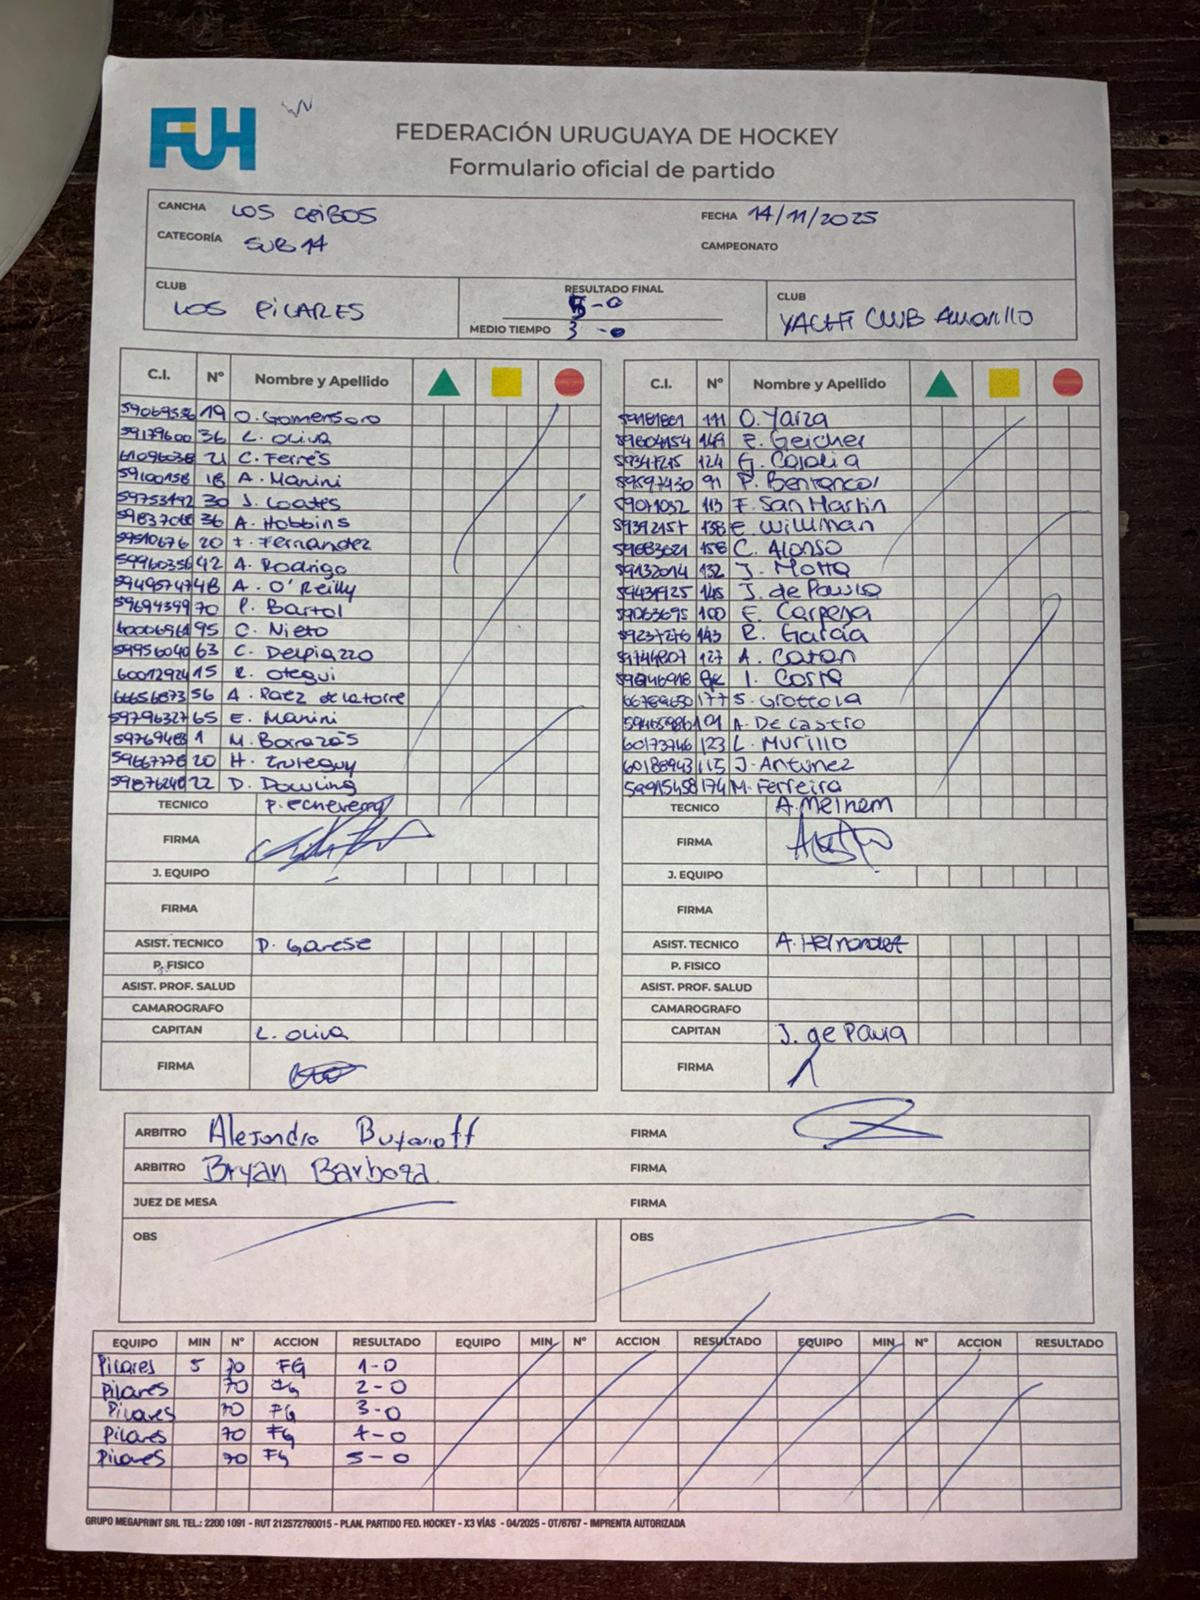 FUH
FEDERACIÓN URUGUAYA DE HOCKEY
Formulario oficial de partido
CANCHA LOS CEIBOS
FECHA 14/11/2025
CATEGORÍA SUB 14
CAMPEONATO
CLUB LOS PILARES
RESULTADO FINAL 5-0
MEDIO TIEMPO 3-0
CLUB YACHT CLUB Amarillo
C.I. Nº Nombre y Apellido
59069536 19 O. Gomensoro
59179600 36 L. Oliva
61096038 21 C. Ferrés
59100158 18 A. Manini
59753492 30 J. Coates
36 A. Hobbins
59510676 20 F. Fernandez
59960356 42 A. Rodrigo
59495747 48 A. O'Reilly
59694399 70 P. Bartol
60006961 95 C. Nieto
59956040 63 C. Delpiazzo
60012924 15 R. Otegui
56 A. Paez de la torre
59796327 65 E. Manini
59769483 1 M. Borrazás
59667776 20 H.
59876240 22 D. Dowling
TECNICO P. Echeverry
FIRMA
J. EQUIPO
FIRMA
ASIST. TECNICO D. Garese
P. FISICO
ASIST. PROF. SALUD
CAMAROGRAFO
CAPITAN L. Oliva
FIRMA
C.I. Nº Nombre y Apellido
59181861 111 O. Yarza
59604154 149 Geicher
59347215 124 G.
59597430 91 P. Bentancor
59071032 113 F. San Martin
59392157 138 E. Williman
59683021 158 C. Alonso
59132014 132 J. Motta
59431925 145 J. de Paula
59063695 100 E. Carpena
59237276 143 R. García
59744807 127 A.
I. Costa
66789650 177 S. Grottola
59465986 101 A. De Castro
60173746 123 L. Murillo
60188943 115 J. Antúnez
59915458 174 M. Ferreira
TECNICO A. Meinem
FIRMA
J. EQUIPO
FIRMA
ASIST. TECNICO A. Hernandez
P. FISICO
ASIST. PROF. SALUD
CAMAROGRAFO
CAPITAN J. de Paula
FIRMA
ARBITRO Alejandro FIRMA
ARBITRO Bryan Barboza FIRMA
JUEZ DE MESA FIRMA
OBS OBS
EQUIPO MIN Nº ACCION RESULTADO EQUIPO MIN Nº ACCION RESULTADO EQUIPO MIN Nº ACCION RESULTADO
Pilares 5 70 FG 1-0
Pilares 70 FG 2-0
Pilares 70 FG 3-0
Pilares 70 FG 4-0
Pilares 70 FG 5-0
GRUPO MEGAPRINT SRL TEL.: 2200 1091 - RUT 212572760015 - PLAN. PARTIDO FED. HOCKEY - X3 VÍAS - 04/2025 - OT/6767 - IMPRENTA AUTORIZADA